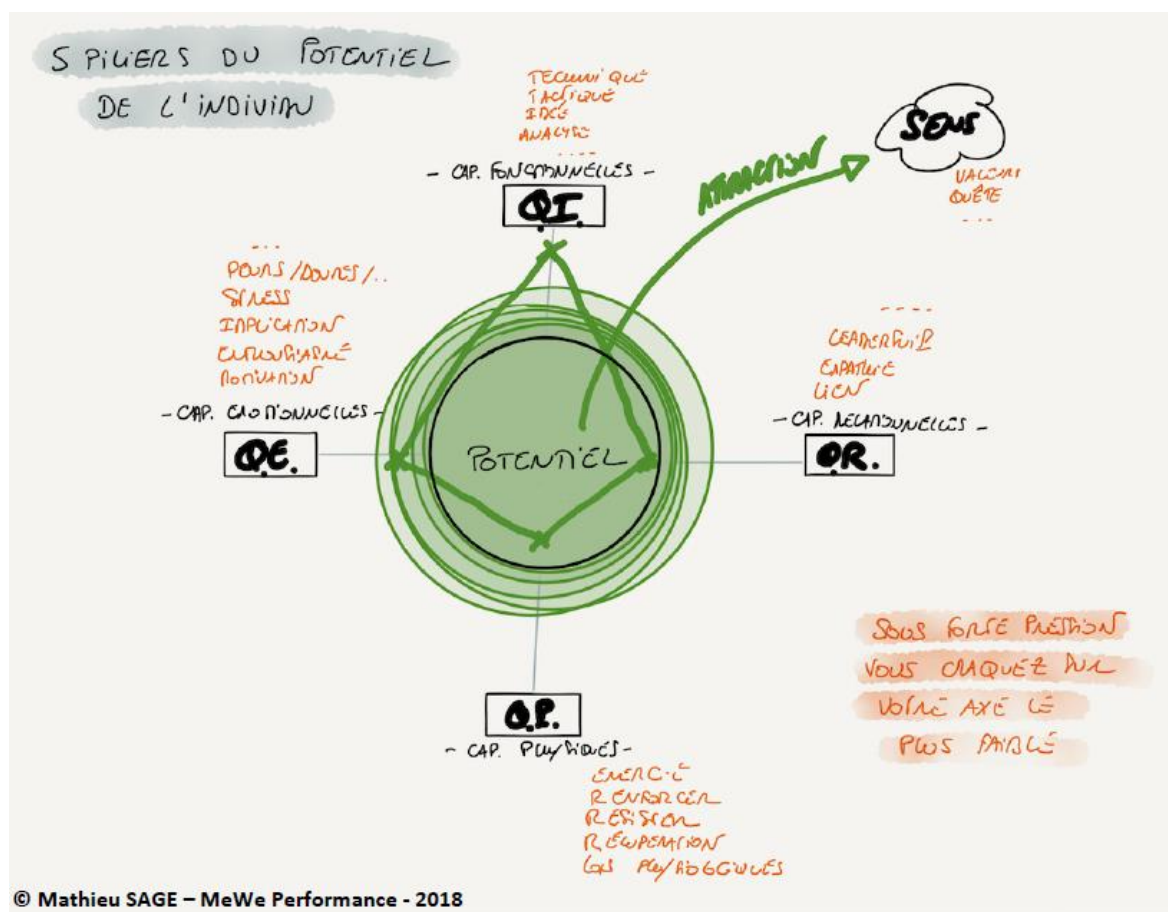 5 PILIERS DU POTENTIEL
DE L'INDIVIDU
TECHNIQUE
TACTIQUE
IDÉE
ANALYSE
....
- CAP. FONCTIONNELLES -
Q.I.
ATTRACTION
SENS
VALEURS
QUÊTE
...
...
PEURS / DOUTES / ..
STRESS
IMPLICATION
ENTHOUSIASME
MOTIVATION
- CAP. EMOTIONNELLES -
Q.E.
POTENTIEL
....
LEADERSHIP
EMPATHIE
LIEN
- CAP. RELATIONNELLES -
Q.R.
Q.P.
- CAP. PHYSIQUES -
ENERGIE
RENFORCER
RESISTER
RÉCUPERATION
PHYSIOLOGIQUES
SOUS FORTE PRESSION
VOUS CRAQUEZ SUR
VOTRE AXE LE
PLUS FAIBLE
© Mathieu SAGE – MeWe Performance - 2018